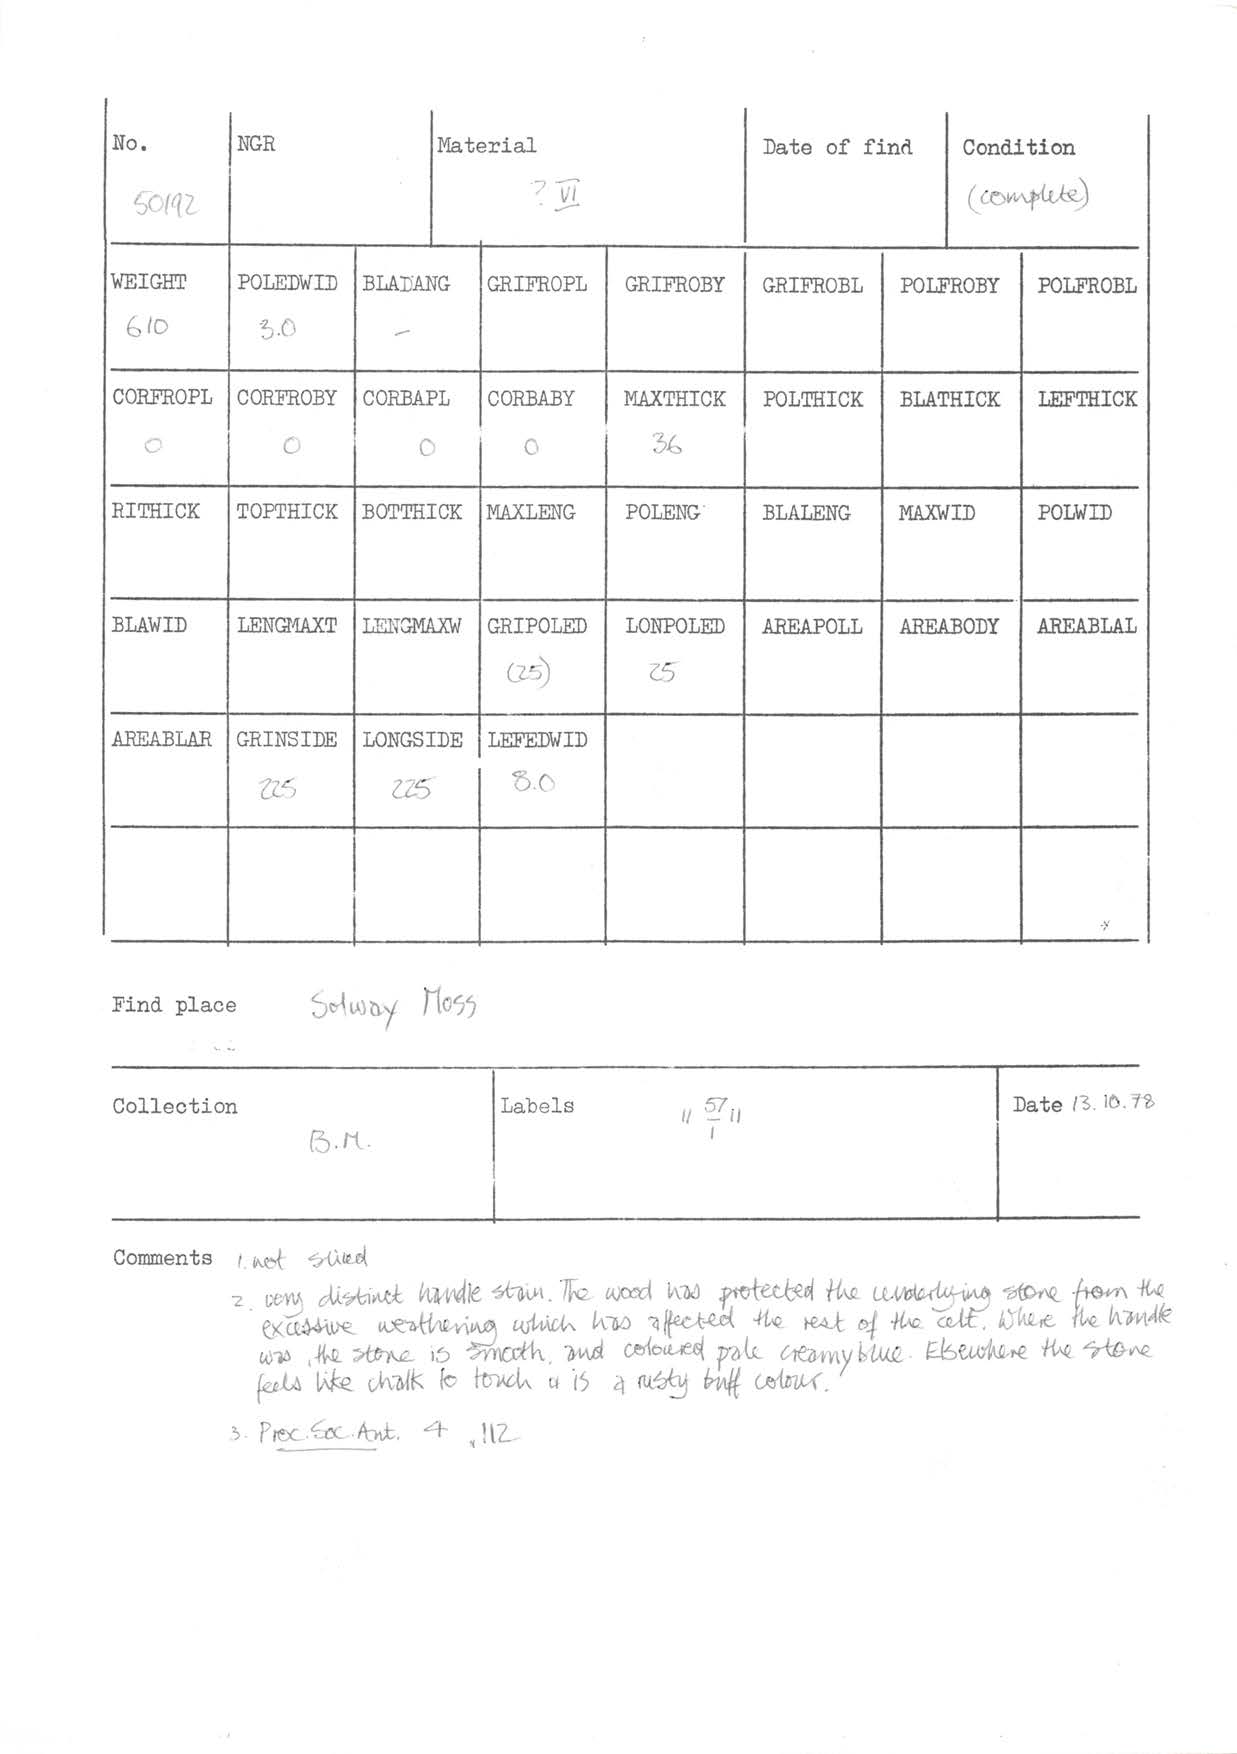 No. NGR Material Date of find Condition
50192 ? VI (complete)
WEIGHT POLEDWID BLADANG GRIFROPL GRIFROBY GRIFROBL POLFROBY POLFROBL
610 3.0 –
CORFROPL CORFROBY CORBAPL CORBABY MAXTHICK POLTHICK BLATHICK LEFTHICK
0 0 0 0 36
RITHICK TOPTHICK BOTTHICK MAXLENG POLENG BLALENG MAXWID POLWID
BLAWID LENGMAXT LENGMAXW GRIPOLED LONPOLED AREAPOLL AREABODY AREABLAL
(25) 25
AREABLAR GRINSIDE LONGSIDE LEFEDWID
225 225 8.0
Find place Solway Moss
Collection Labels " 57/1 " Date 13.10.78
B.M.
Comments 1. not sliced
2. very distinct handle stain. The wood has protected the underlying stone from the
excessive weathering which has affected the rest of the celt. Where the handle
was, the stone is smooth, and coloured pale creamy blue. Elsewhere the stone
feels like chalk to touch & is a rusty buff colour.
3. Proc. Soc. Ant. 4, 112